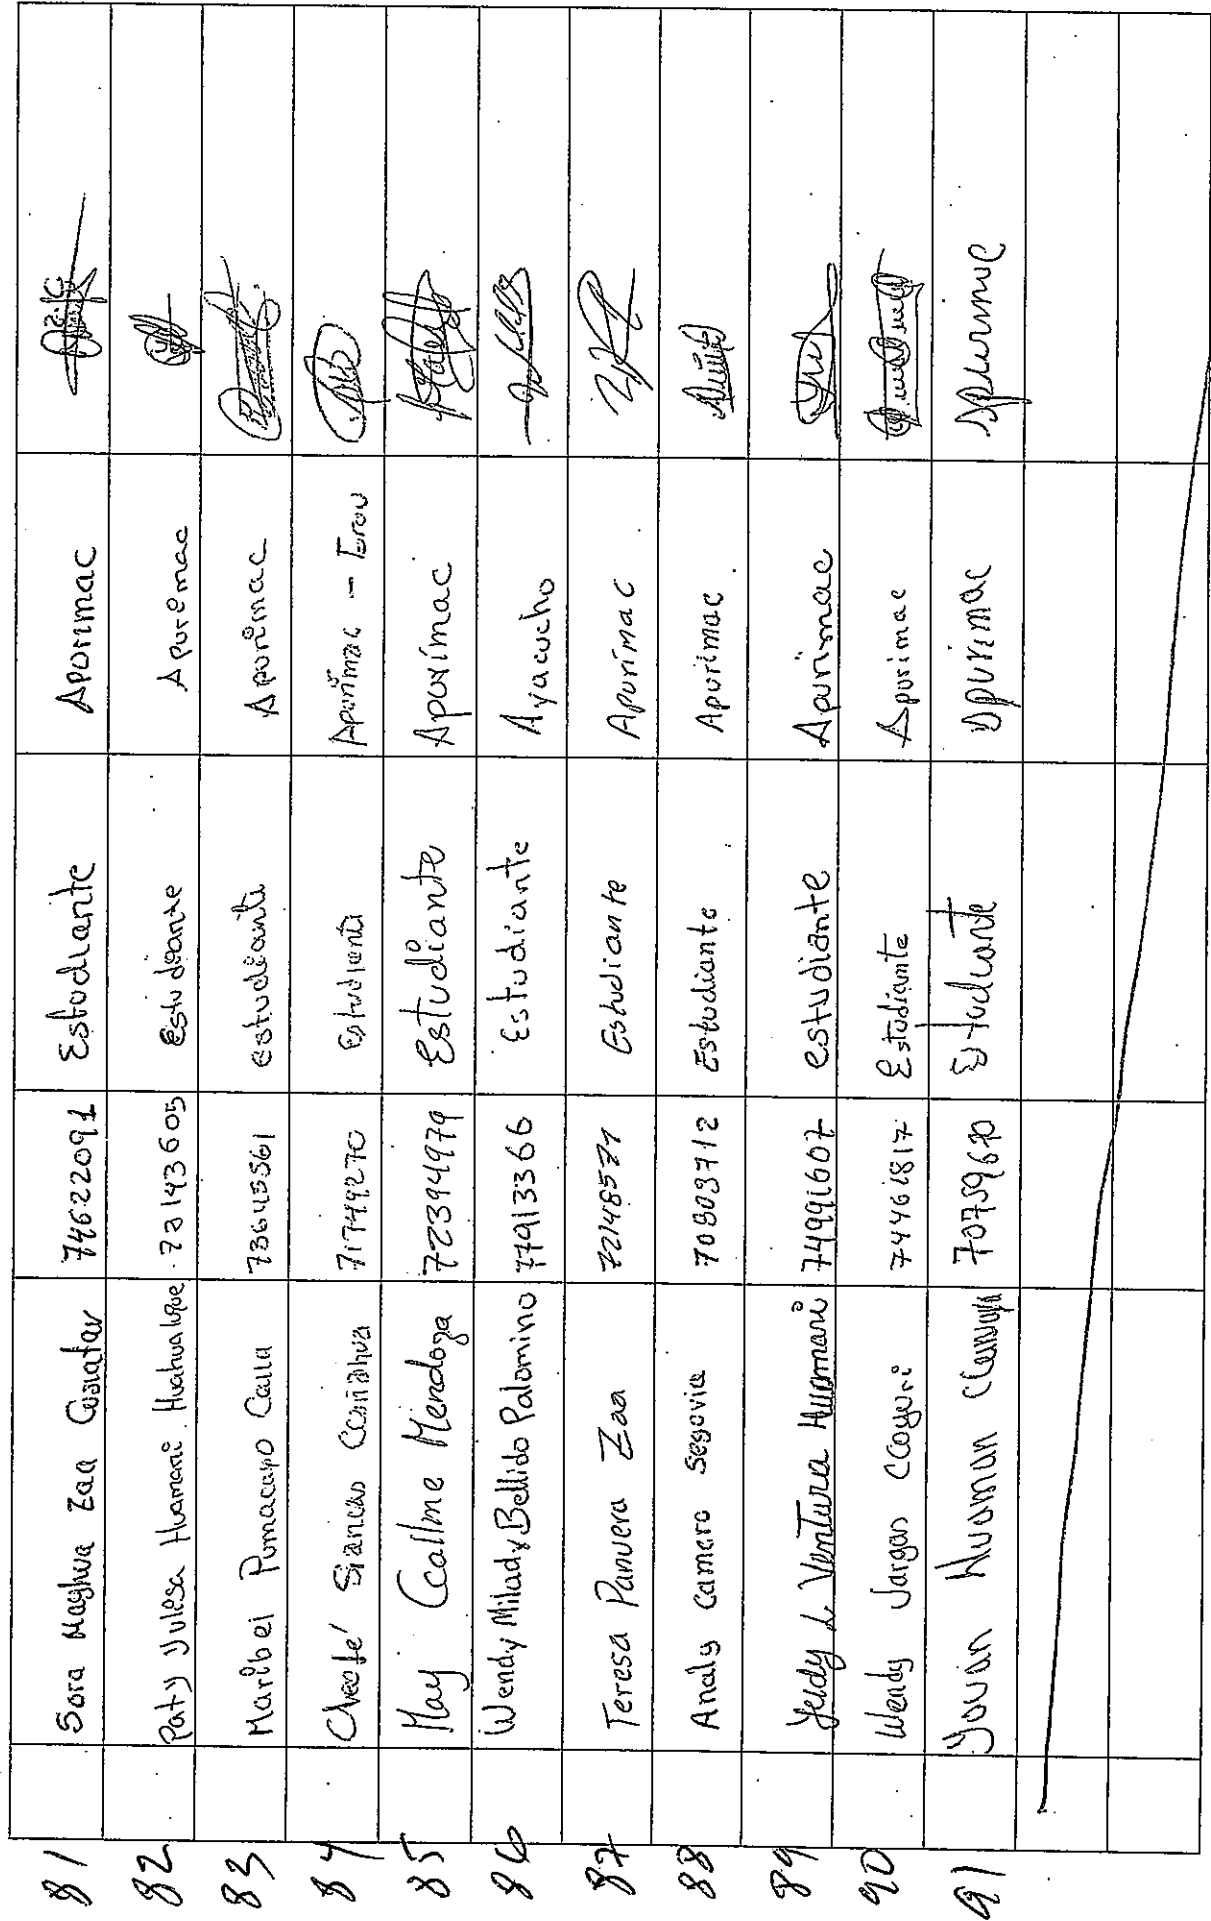 81 Sara Maghua Zaa 74622091 Estudiante Aporimac
82 Paty Yulesa Huamani Huahualuque 72143605 Estudiante Apuremac
83 Maribel Pumacayo Calla 73645561 estudiante Aporimac
84 71749270 Estudiante Aporimac -
85 May Ccallme Mendoza 72394979 Estudiante Apurímac
86 Wendy Milady Bellido Palomino 77913366 Estudiante Ayacucho
87 Teresa Panuera Zaa 72148571 Estudiante Apurímac
88 Analy Camero Segovia 70803712 Estudiante Apurimac
89 Yeldy L. Ventura Huamani 74991607 estudiante Apurimac
90 Wendy Vargas Ccoyuri 74461817 Estudiante Apurimac
91 Yovan Huaman 70759670 Estudiante Apurimac